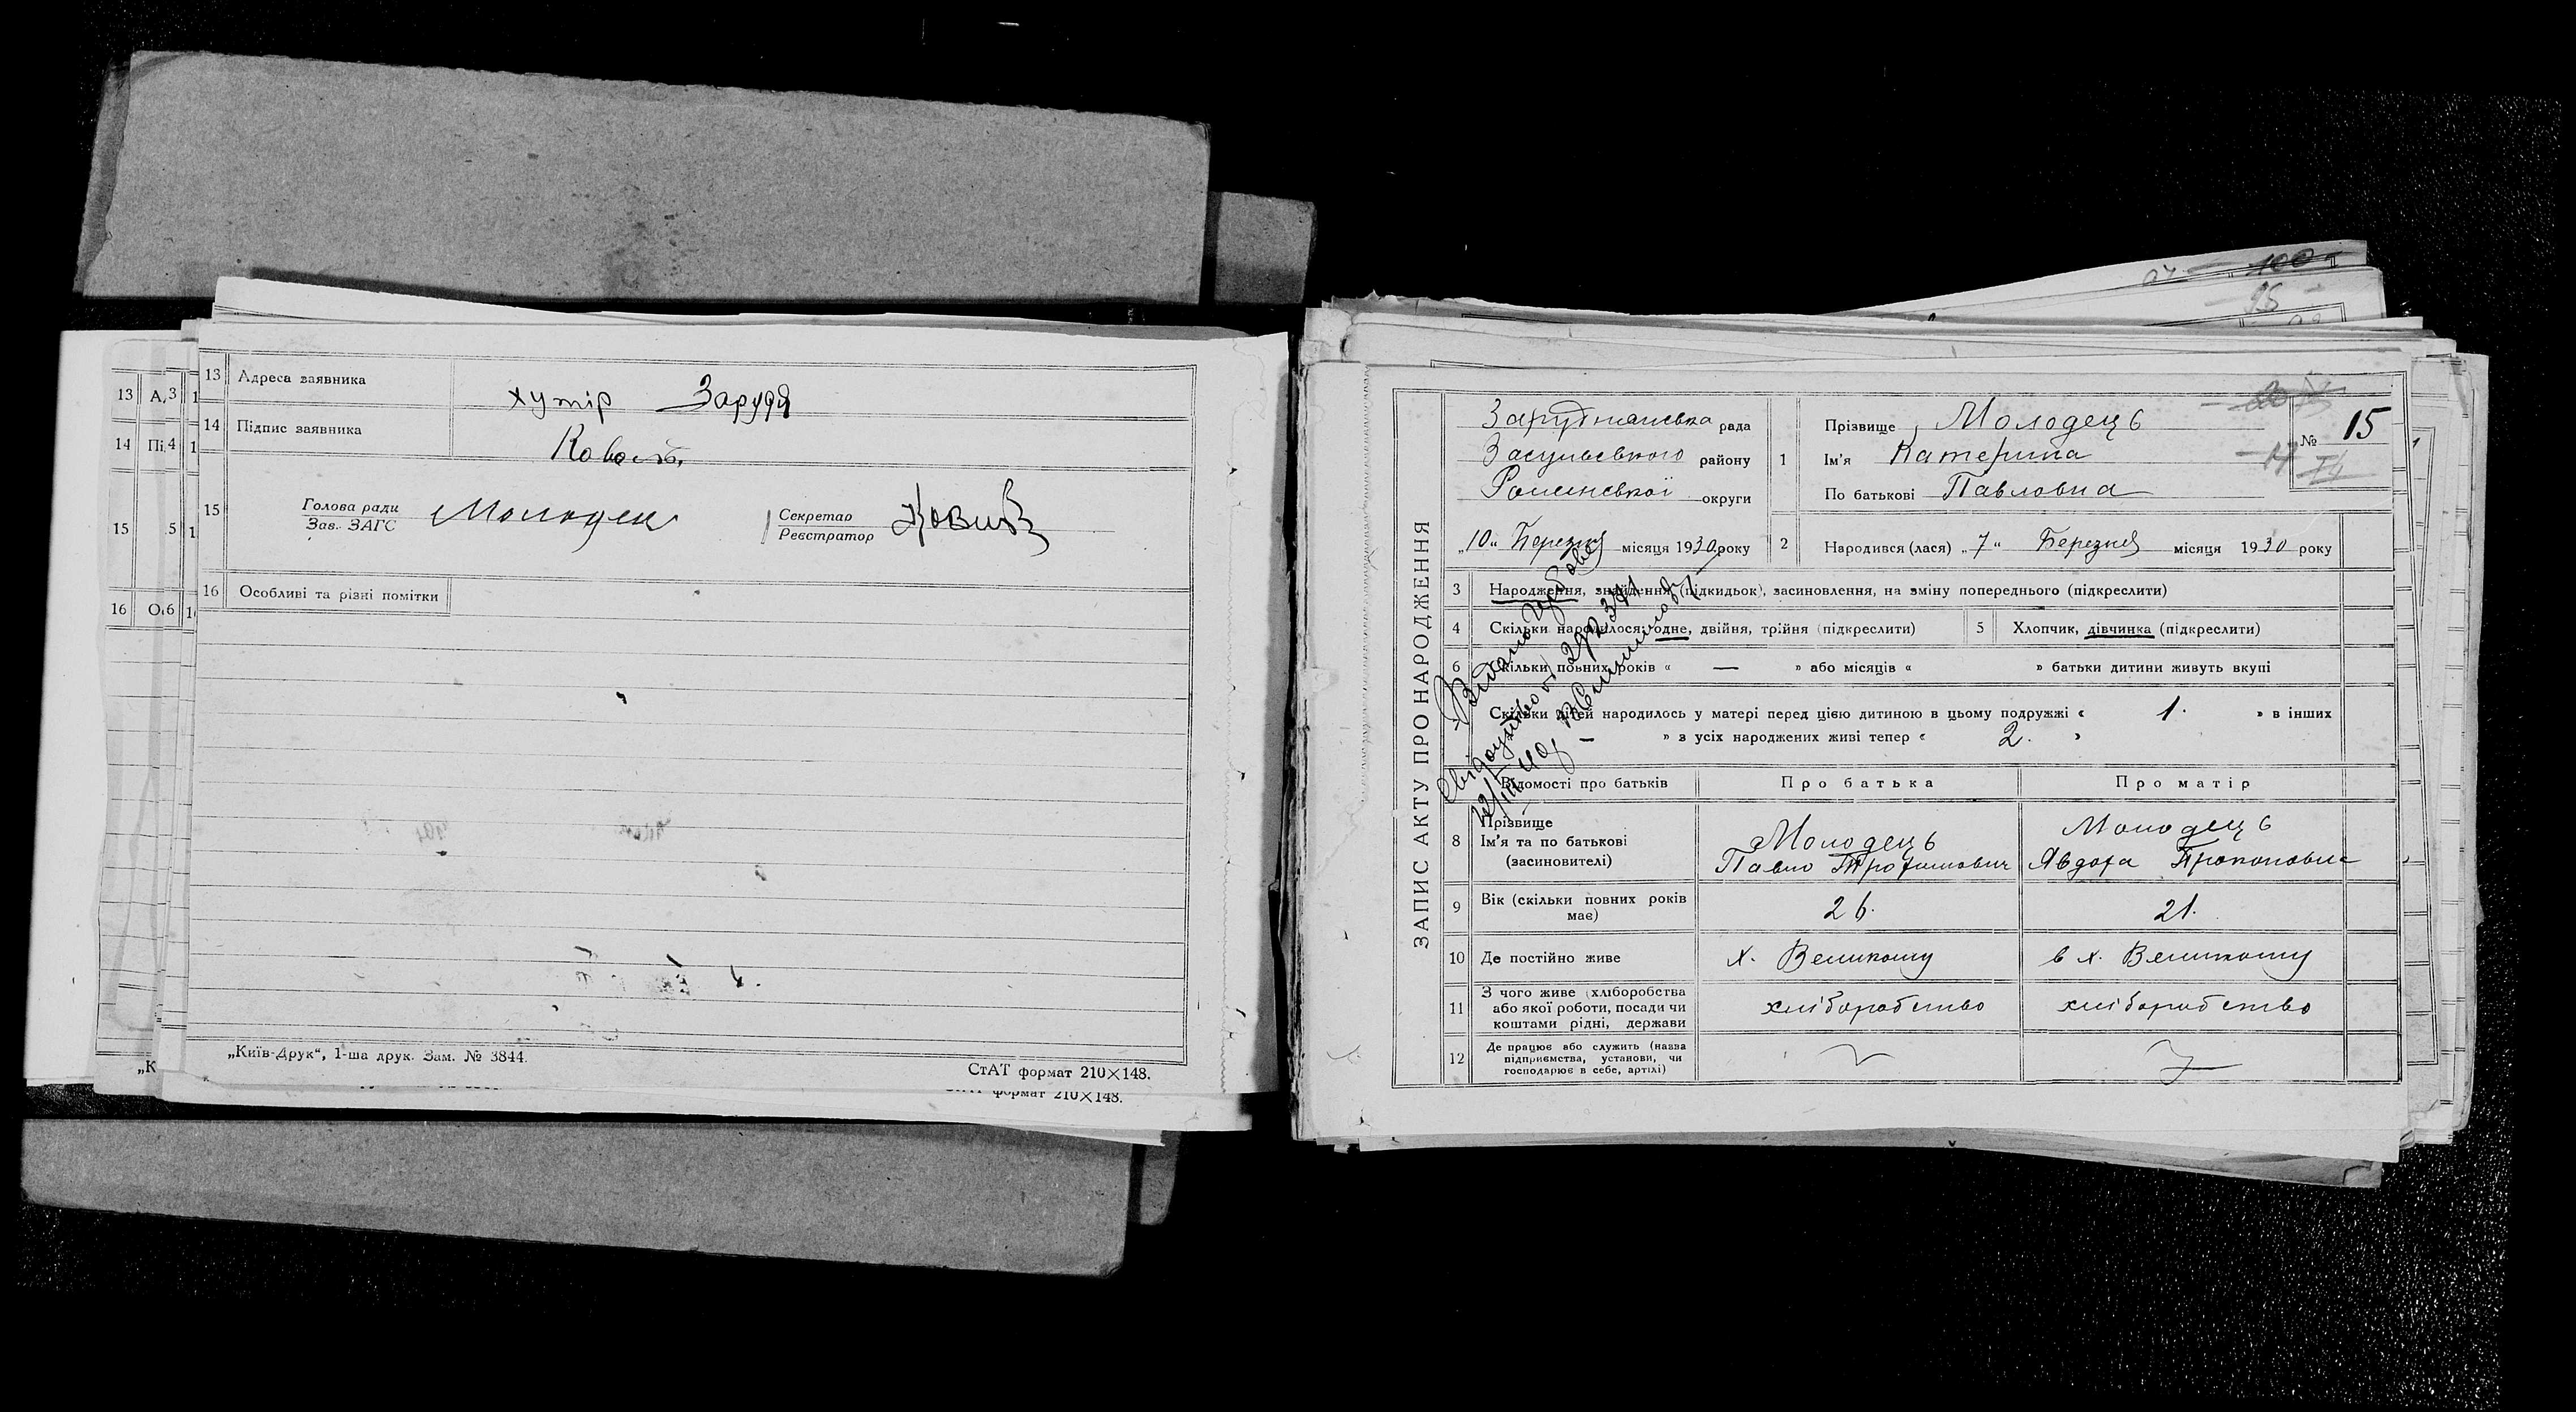 13 Адреса заявника хутір Заруддя
14 Підпис заявника Коваль
15 Голова ради Зав. ЗАГС Молодец Секретар Реєстратор
16 Особливі та різні помітки
„Київ-Друк“, 1-ша друк. Зам. № 3844.
СтАТ формат 210×148.
формат 210×148.
13
14
15
16
100
95
ЗАПИС АКТУ ПРО НАРОДЖЕННЯ
Заруднянська рада
Засульського району
Роменської округи
„10“ Березня місяця 1930 року
1 Прізвище Молодець
Ім'я Катерина
По батькові Павловна
№ 15
2 Народився (лася) „7“ Березня місяця 1930 року
3 Народження, знайдення (підкидьок), засиновлення, на зміну попереднього (підкреслити)
4 Скільки народилося: одне, двійня, трійня (підкреслити) 5 Хлопчик, дівчинка (підкреслити)
6 Скільки повних років « — » або місяців « » батьки дитини живуть вкупі
Скільки дітей народилось у матері перед цією дитиною в цьому подружжі « 1. » в інших
— » з усіх народжених живі тепер « 2. »
Видано
свідоцтво
Відомості про батьків Про батька Про матір
8 Прізвище Ім'я та по батькові (засиновителі)
Молодець Павло Трофимович
Молодець Явдоха Прокоповна
9 Вік (скільки повних років має) 26. 21.
10 Де постійно живе х. Великому в х. Великому
11 З чого живе (хліборобства або якої роботи, посади чи коштами рідні, держави хліборобство хліборобство
12 Де працює або служить (назва підприємства, установи, чи господарює в себе, артілі)